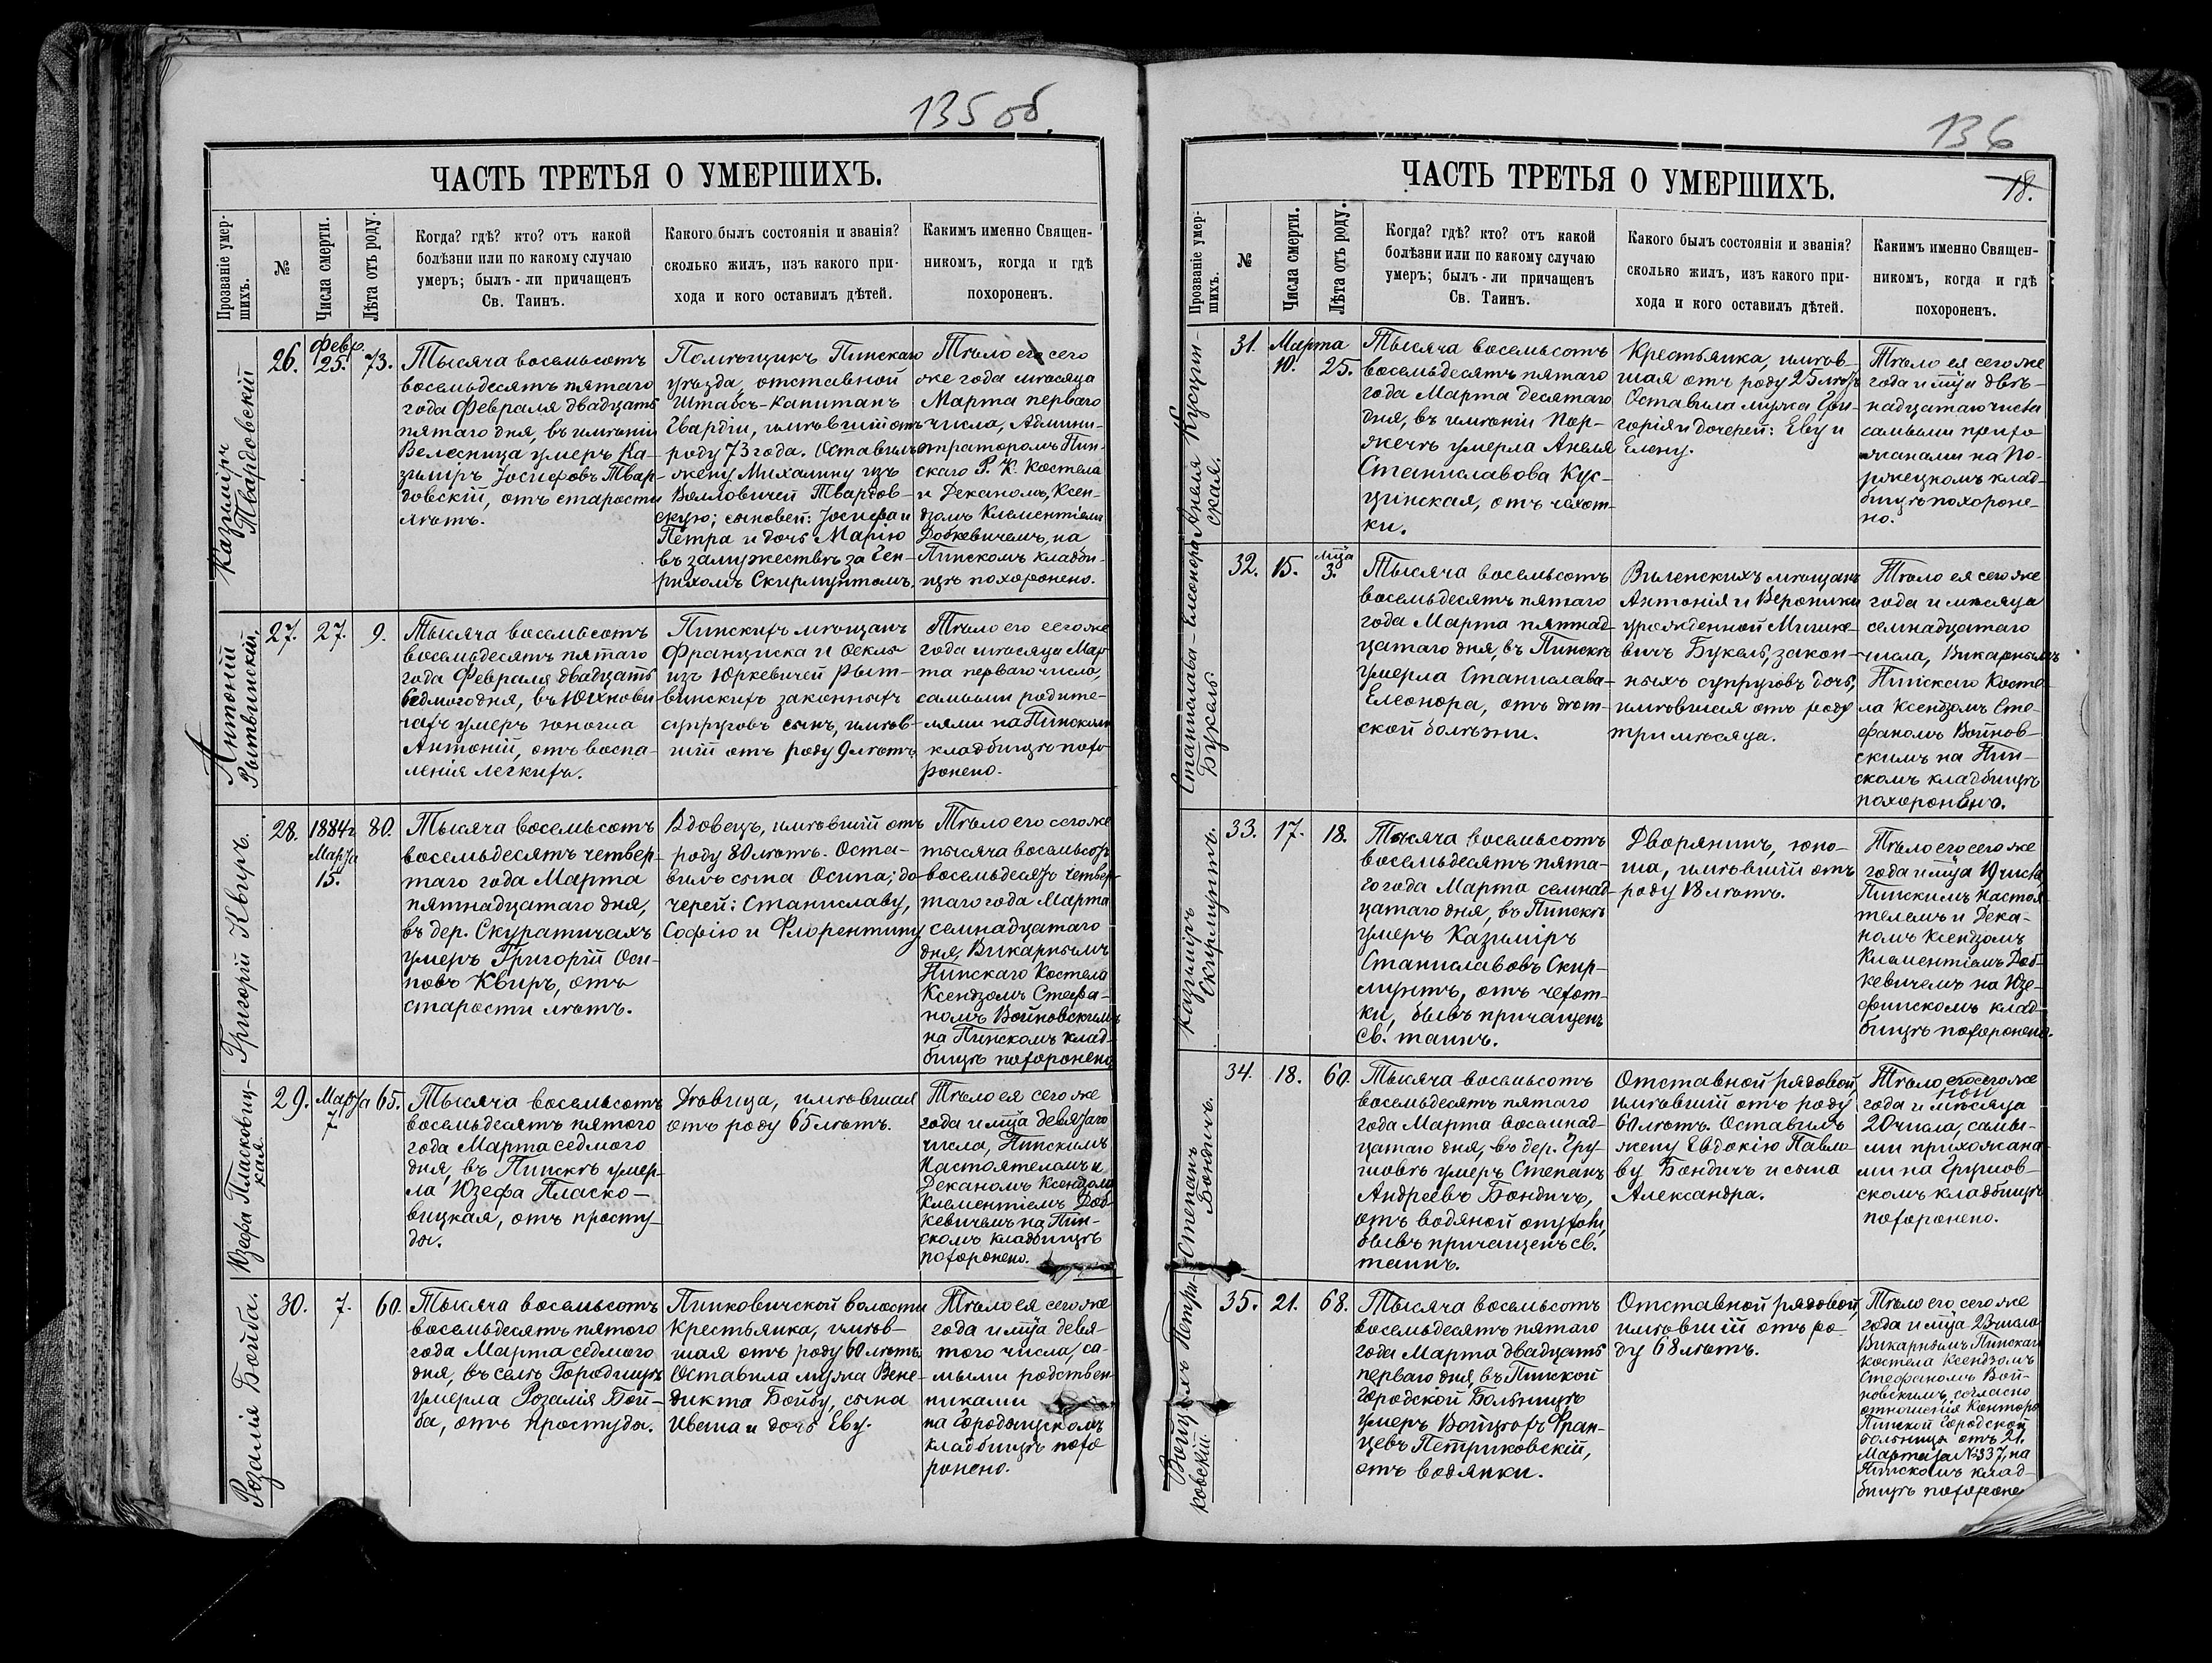 135 об.
ЧАСТЬ ТРЕТЬЯ О УМЕРШИХЪ.
Прозваніе умер-
шихъ.
№
Числа смерти.
Лѣта отъ роду.
Когда? гдѣ? кто? отъ какой
болѣзни или по какому случаю
умеръ; былъ-ли причащенъ
Св. Таинъ.
Какого былъ состоянія и званія?
сколько жилъ, изъ какого при-
хода и кого оставилъ дѣтей.
Какимъ именно Священ-
никомъ, когда и гдѣ
похороненъ.
Казиміръ
Твардовскій
26.
Февр.
25.
73.
Тысяча восемьсотъ
восемьдесятъ пятаго
года Февраля двадцать
пятаго дня, въ имѣніи
Велесница умеръ Ка-
зиміръ Іосифовъ Твар-
довскій, отъ старости
лѣтъ.
Помѣщикъ Пинскаго
уѣзда, отставной
Штабсъ-Капитанъ
Гвардіи, имѣвшій отъ
роду 73 года. Оставилъ
жену Михалину изъ
Вяловичей Твардов-
скую; сыновей: Іосифа и
Петра и дочь Марію
въ замужествѣ за Ген-
рихомъ Скирмунтомъ.
Тѣло его сего
же года мѣсяца
Марта перваго
числа, Админи-
страторомъ Пин-
скаго Р. К. Костела
и Деканомъ, Ксен-
дзомъ Клементіемъ
Добкевичемъ, на
Пинскомъ кладби-
щѣ похоронено.
Антоній
Рытвинскій.
27.
27.
9.
Тысяча восемьсотъ
восемьдесятъ пятаго
года Февраля двадцать
седмого дня, въ Юхнови-
чахъ умеръ юноша
Антоній, отъ воспа-
ленія легкихъ.
Пинскихъ мѣщанъ
Франциска и Феклы
изъ Юркевичей Рыт-
винскихъ законныхъ
супруговъ сынъ, имѣв-
шій отъ роду 9 лѣтъ.
Тѣло его сего же
года мѣсяца Мар-
та перваго числа,
самыми родите-
лями на Пинскомъ
кладбищѣ похо-
ронено.
Григорій Квиръ.
28.
1884 г.
Марта
15.
80.
Тысяча восемьсотъ
восемьдесятъ четвер-
таго года Марта
пятнадцатаго дня,
въ дер. Скуратичахъ
умеръ Григорій Оси-
повъ Квиръ, отъ
старости лѣтъ.
Вдовецъ, имѣвшій отъ
роду 80 лѣтъ. Оста-
вилъ сына Осипа; до-
черей: Станиславу,
Софію и Флорентину
Тѣло его сего же
тысяча восемьсотъ
восемьдесятъ четвер-
таго года Марта
семнадцатаго
дня, Викарнымъ
Пинскаго Костела
Ксендзомъ Стефа-
номъ Войновскимъ
на Пинскомъ клад-
бищѣ похоронено
Юзефа Пласковиц-
кая
29.
Марта
7
65.
Тысяча восемьсотъ
восемьдесятъ пятого
года Марта седмого
дня, въ Пинскѣ умер-
ла Юзефа Пласко-
вицкая, отъ просту-
ды.
Дѣвица, имѣвшая
отъ роду 65 лѣтъ.
Тѣло ея сего же
года и мца девятаго
числа, Пинскимъ
Настоятелемъ и
Деканомъ Ксендзомъ
Клементіемъ Доб-
кевичемъ на Пин-
скомъ кладбищѣ
похоронено.
Розалія Бойба.
30.
7.
60.
Тысяча восемьсотъ
восемьдесятъ пятого
года Марта седмого
дня, въ селѣ Городищѣ
умерла Розалія Бой-
ба, отъ простуды.
Пинковичской волости
Крестьянка, имѣв-
шая отъ роду 60 лѣтъ.
Оставила мужа Вене-
дикта Бойбу, сына
Ивана и дочь Еву.
Тѣло ея сего же
года и мца девя-
того числа, са-
мыми родствен-
никами
на Городищскомъ
кладбищѣ похо
ронено.
136
ЧАСТЬ ТРЕТЬЯ О УМЕРШИХЪ.
18.
Прозваніе умер-
шихъ.
№
Числа смерти.
Лѣта отъ роду.
Когда? гдѣ? кто? отъ какой
болѣзни или по какому случаю
умеръ; былъ-ли причащенъ
Св. Таинъ.
Какого былъ состоянія и званія?
сколько жилъ, изъ какого при-
хода и кого оставилъ дѣтей.
Какимъ именно Священ-
никомъ, когда и гдѣ
похороненъ.
Анеля Кусцин-
ская.
31.
Марта
10.
25.
Тысяча восемьсотъ
восемьдесятъ пятаго
года Марта десятаго
дня, въ имѣніи Пор-
жечѣ умерла Анеля
Станиславова Кус-
цинская, отъ чахот-
ки.
Крестьянка, имѣв-
шая отъ роду 25 лѣтъ
Оставила мужа Гри-
горія и дочерей: Еву и
Елену.
Тѣло ея сего же
года и мца двѣ-
надцатаго числа
самыми прихо
жанами на По-
рѣцкомъ клад-
бищѣ похороне-
но.
Станислава-Елеонора
Букель.
32.
15.
мца
3.
Тысяча восемьсотъ
восемьдесятъ пятаго
года Марта пятнад-
цатаго дня, въ Пинскѣ
умерла Станислава-
Елеонора, отъ дѣт-
ской болѣзни.
Виленскихъ мѣщанъ
Антонія и Вероники
урожденной Мишке-
вичъ Букель, закон-
ныхъ супруговъ дочь,
имѣвшая отъ роду
три мѣсяца.
Тѣло ея сего же
года и мѣсяца
семнадцатаго
числа, Викарнымъ
Пинскаго Косте-
ла Ксендзомъ Сте-
фаномъ Войнов-
скимъ на Пин-
скомъ кладбищѣ
похоронено.
Казиміръ
Скирмунтъ.
33.
17.
18.
Тысяча восемьсотъ
восемьдесятъ пята-
го года Марта семнад-
цатаго дня, въ Пинскѣ
умеръ Казиміръ
Станиславовъ Скир-
мунтъ, отъ чехот-
ки, бывъ причащенъ
св. таинъ.
Дворянинъ, юно-
ша, имѣвшій отъ
роду 18 лѣтъ.
Тѣло его сего же
года и мца 19 числа
Пинскимъ Настоя-
телемъ и Дека-
номъ Ксендзомъ
Клементіемъ Доб-
кевичемъ на Юзе-
финскомъ клад-
бищѣ похоронено.
Степанъ
Бондичъ.
34.
18.
60.
Тысяча восемьсотъ
восемьдесятъ пятаго
года Марта восемнад-
цатаго дня, въ дер. Гру-
шовѣ умеръ Степанъ
Андреевъ Бондичъ,
отъ водяной опухоли,
бывъ причащенъ св.
таинъ.
Отставной рядовой,
имѣвшій отъ роду
60 лѣтъ. Оставилъ
жену Евдокію Павло-
ву Бондичъ и сына
Александра.
Тѣло его сего же
года и мѣсяца
20 числа, самы-
ми прихожана-
ми на Грушов-
скомъ кладбищѣ
похоронено.
Войцѣхъ Петри-
ковскій
35.
21.
68.
Тысяча восемьсотъ
восемьдесятъ пятаго
года Марта двадцать
перваго дня, въ Пинской
Городской Больницѣ
умеръ Войцѣхъ Фран-
цевъ Петриковскій,
отъ водянки.
Отставной рядовой,
имѣвшій отъ ро-
ду 68 лѣтъ.
Тѣло его, сего же
года и мца 23 число
Викарнымъ Пинскаго
костела Ксендзомъ
Стефаномъ Вой-
новскимъ, согласно
отношенія Конторы
Пинской Городской
больницы отъ 21
Марта за № 337, на
Пинскомъ клад-
бищѣ похороне